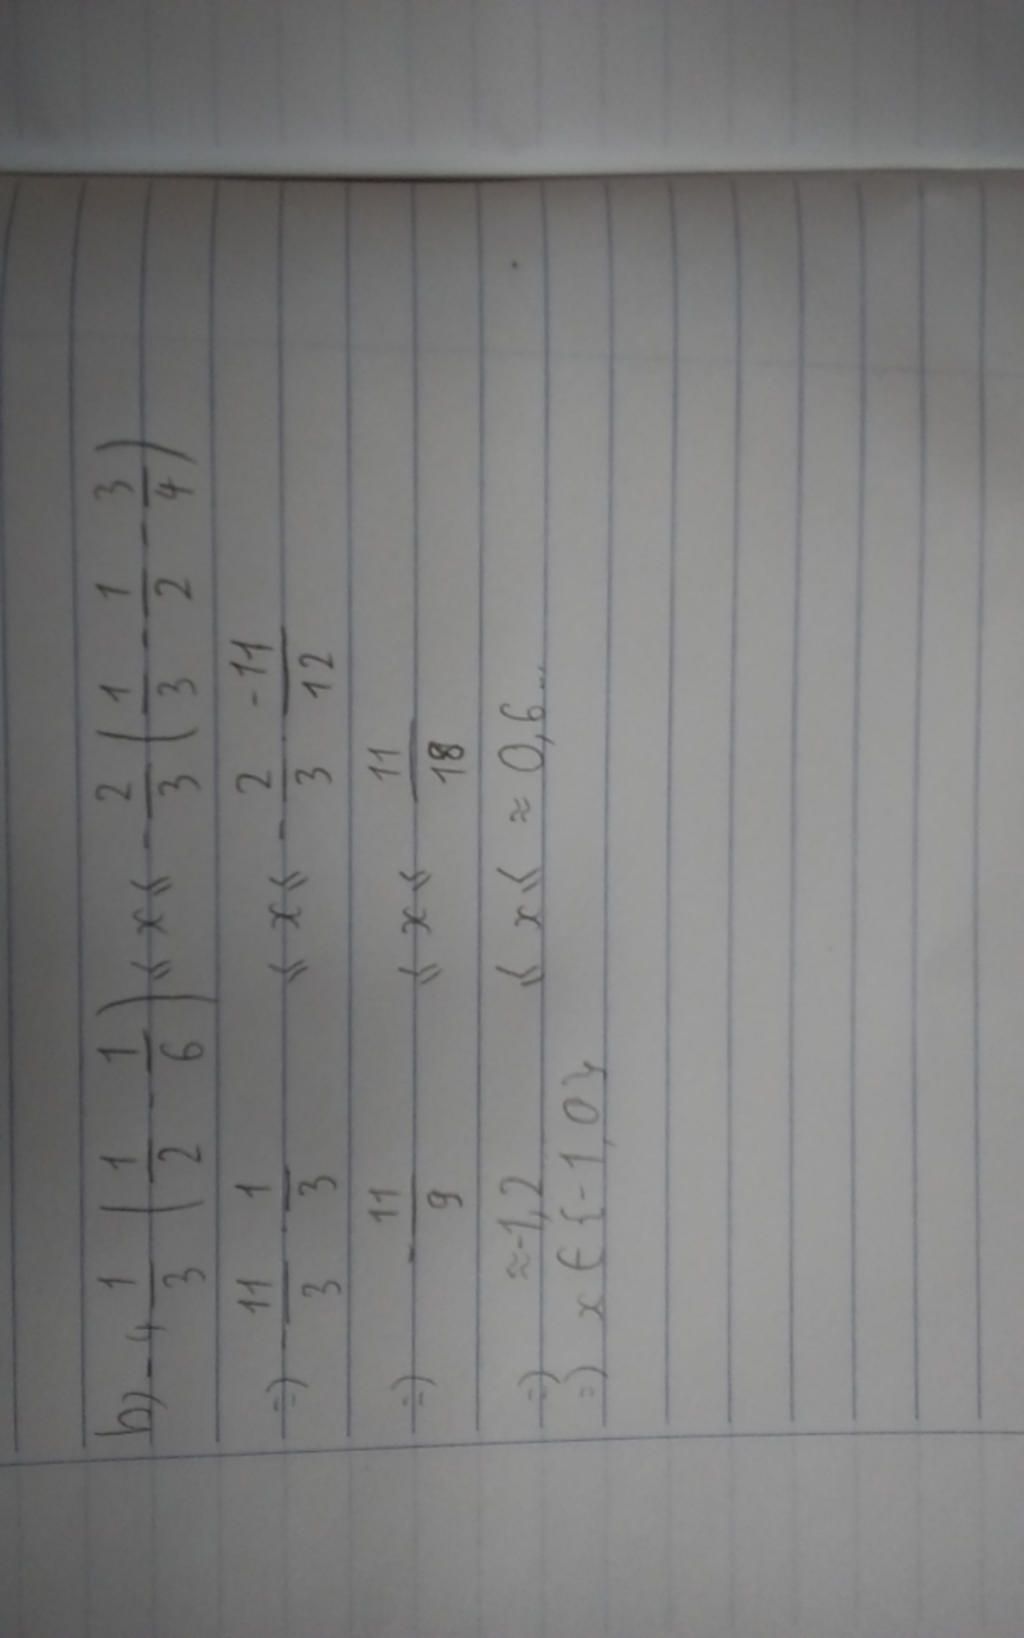 b) -4 1/3 (1/2 - 1/6) ⩽ x ⩽ - 2/3 (1/3 - 1/2 - 3/4)
=) - 11/3 · 1/3 ⩽ x ⩽ - 2/3 · -11/12
=) - 11/9 ⩽ x ⩽ 11/18
=) ≈ -1,2 ⩽ x ⩽ ≈ 0,6...
=) x ∈ {-1,0}